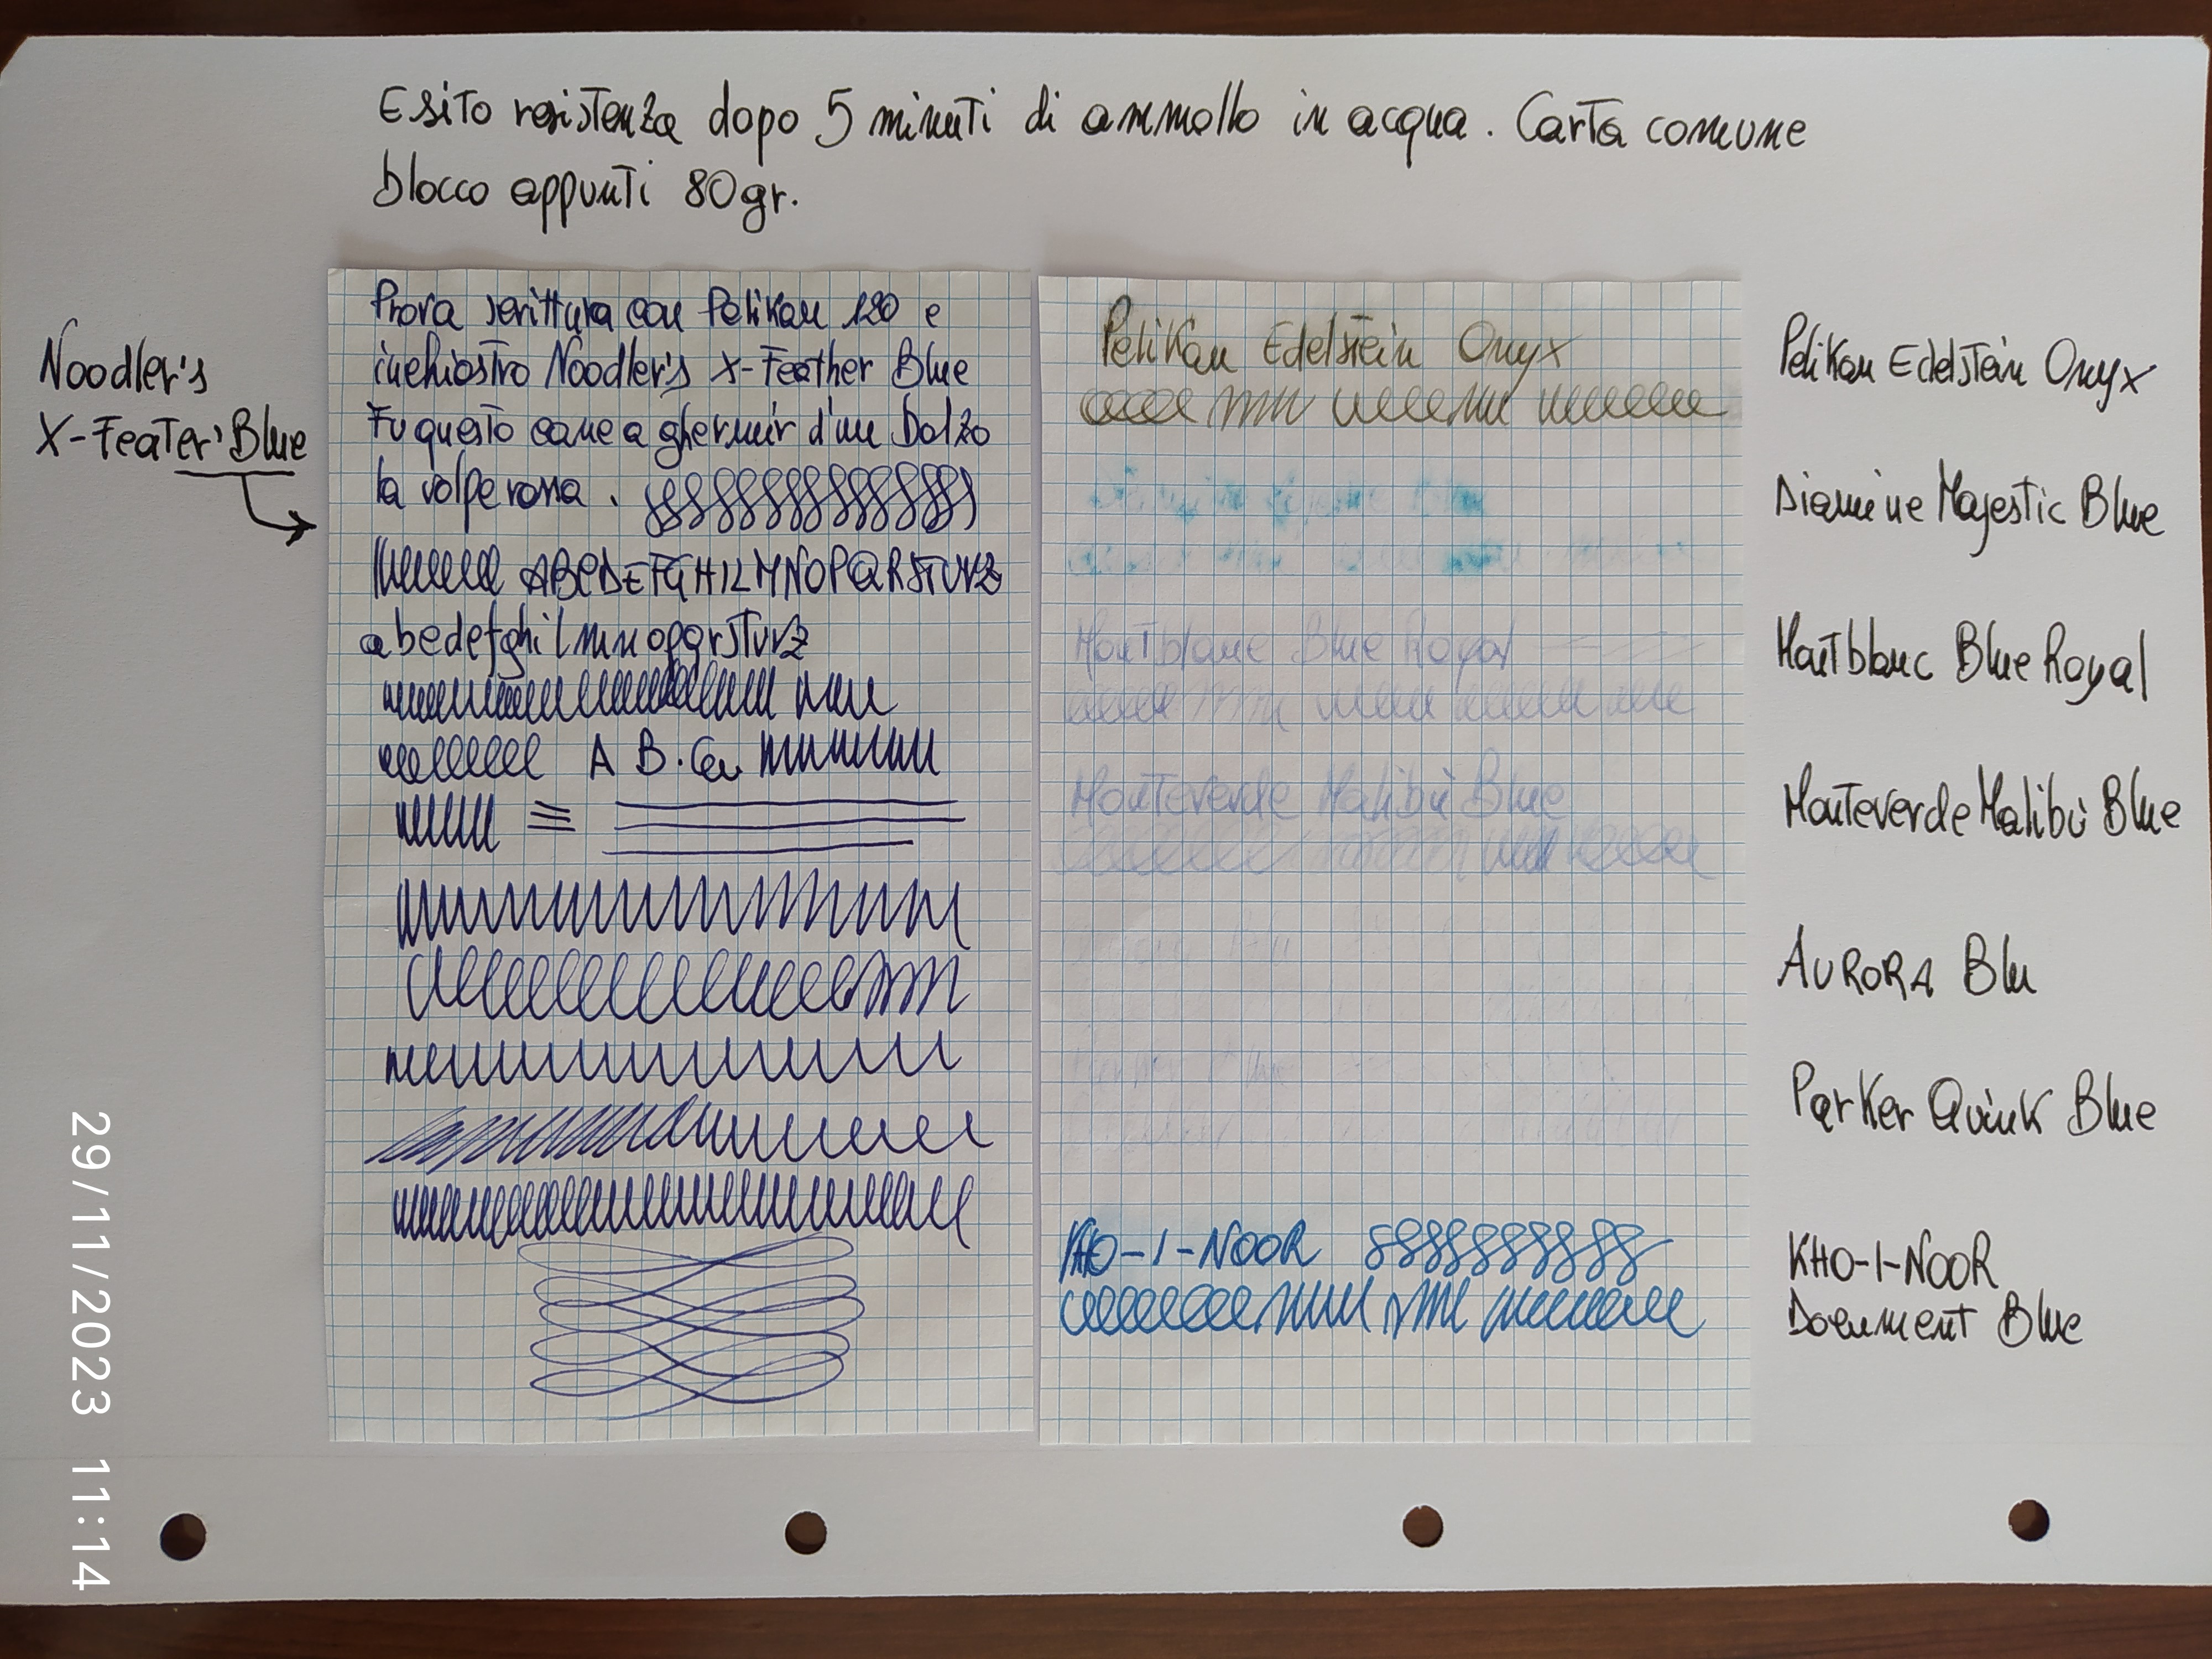 Esito resistenza dopo 5 minuti di ammollo in acqua. Carta comune
blocco appunti 80gr.
Noodler's
X-Feater'Blue
Prova scrittura con Pelikan 120 e
inchiostro Noodler's X-Feather Blue
Fu questo cane a ghermir d'un Balzo
la volpe rossa.
ABCDEFGHILMNOPQRSTUVZ
abcdefghilmnopqrstuvz
A B.
Pelikan Edelstein Onyx
Montblanc Blue Royal
Monteverde Malibù Blue
KHO-I-NOOR
Pelikan Edelstein Onyx
Diamine Majestic Blue
Montblanc Blue Royal
Monteverde Malibù Blue
AURORA Blu
Parker Quink Blue
KHO-I-NOOR
Document Blue
29/11/2023 11:14